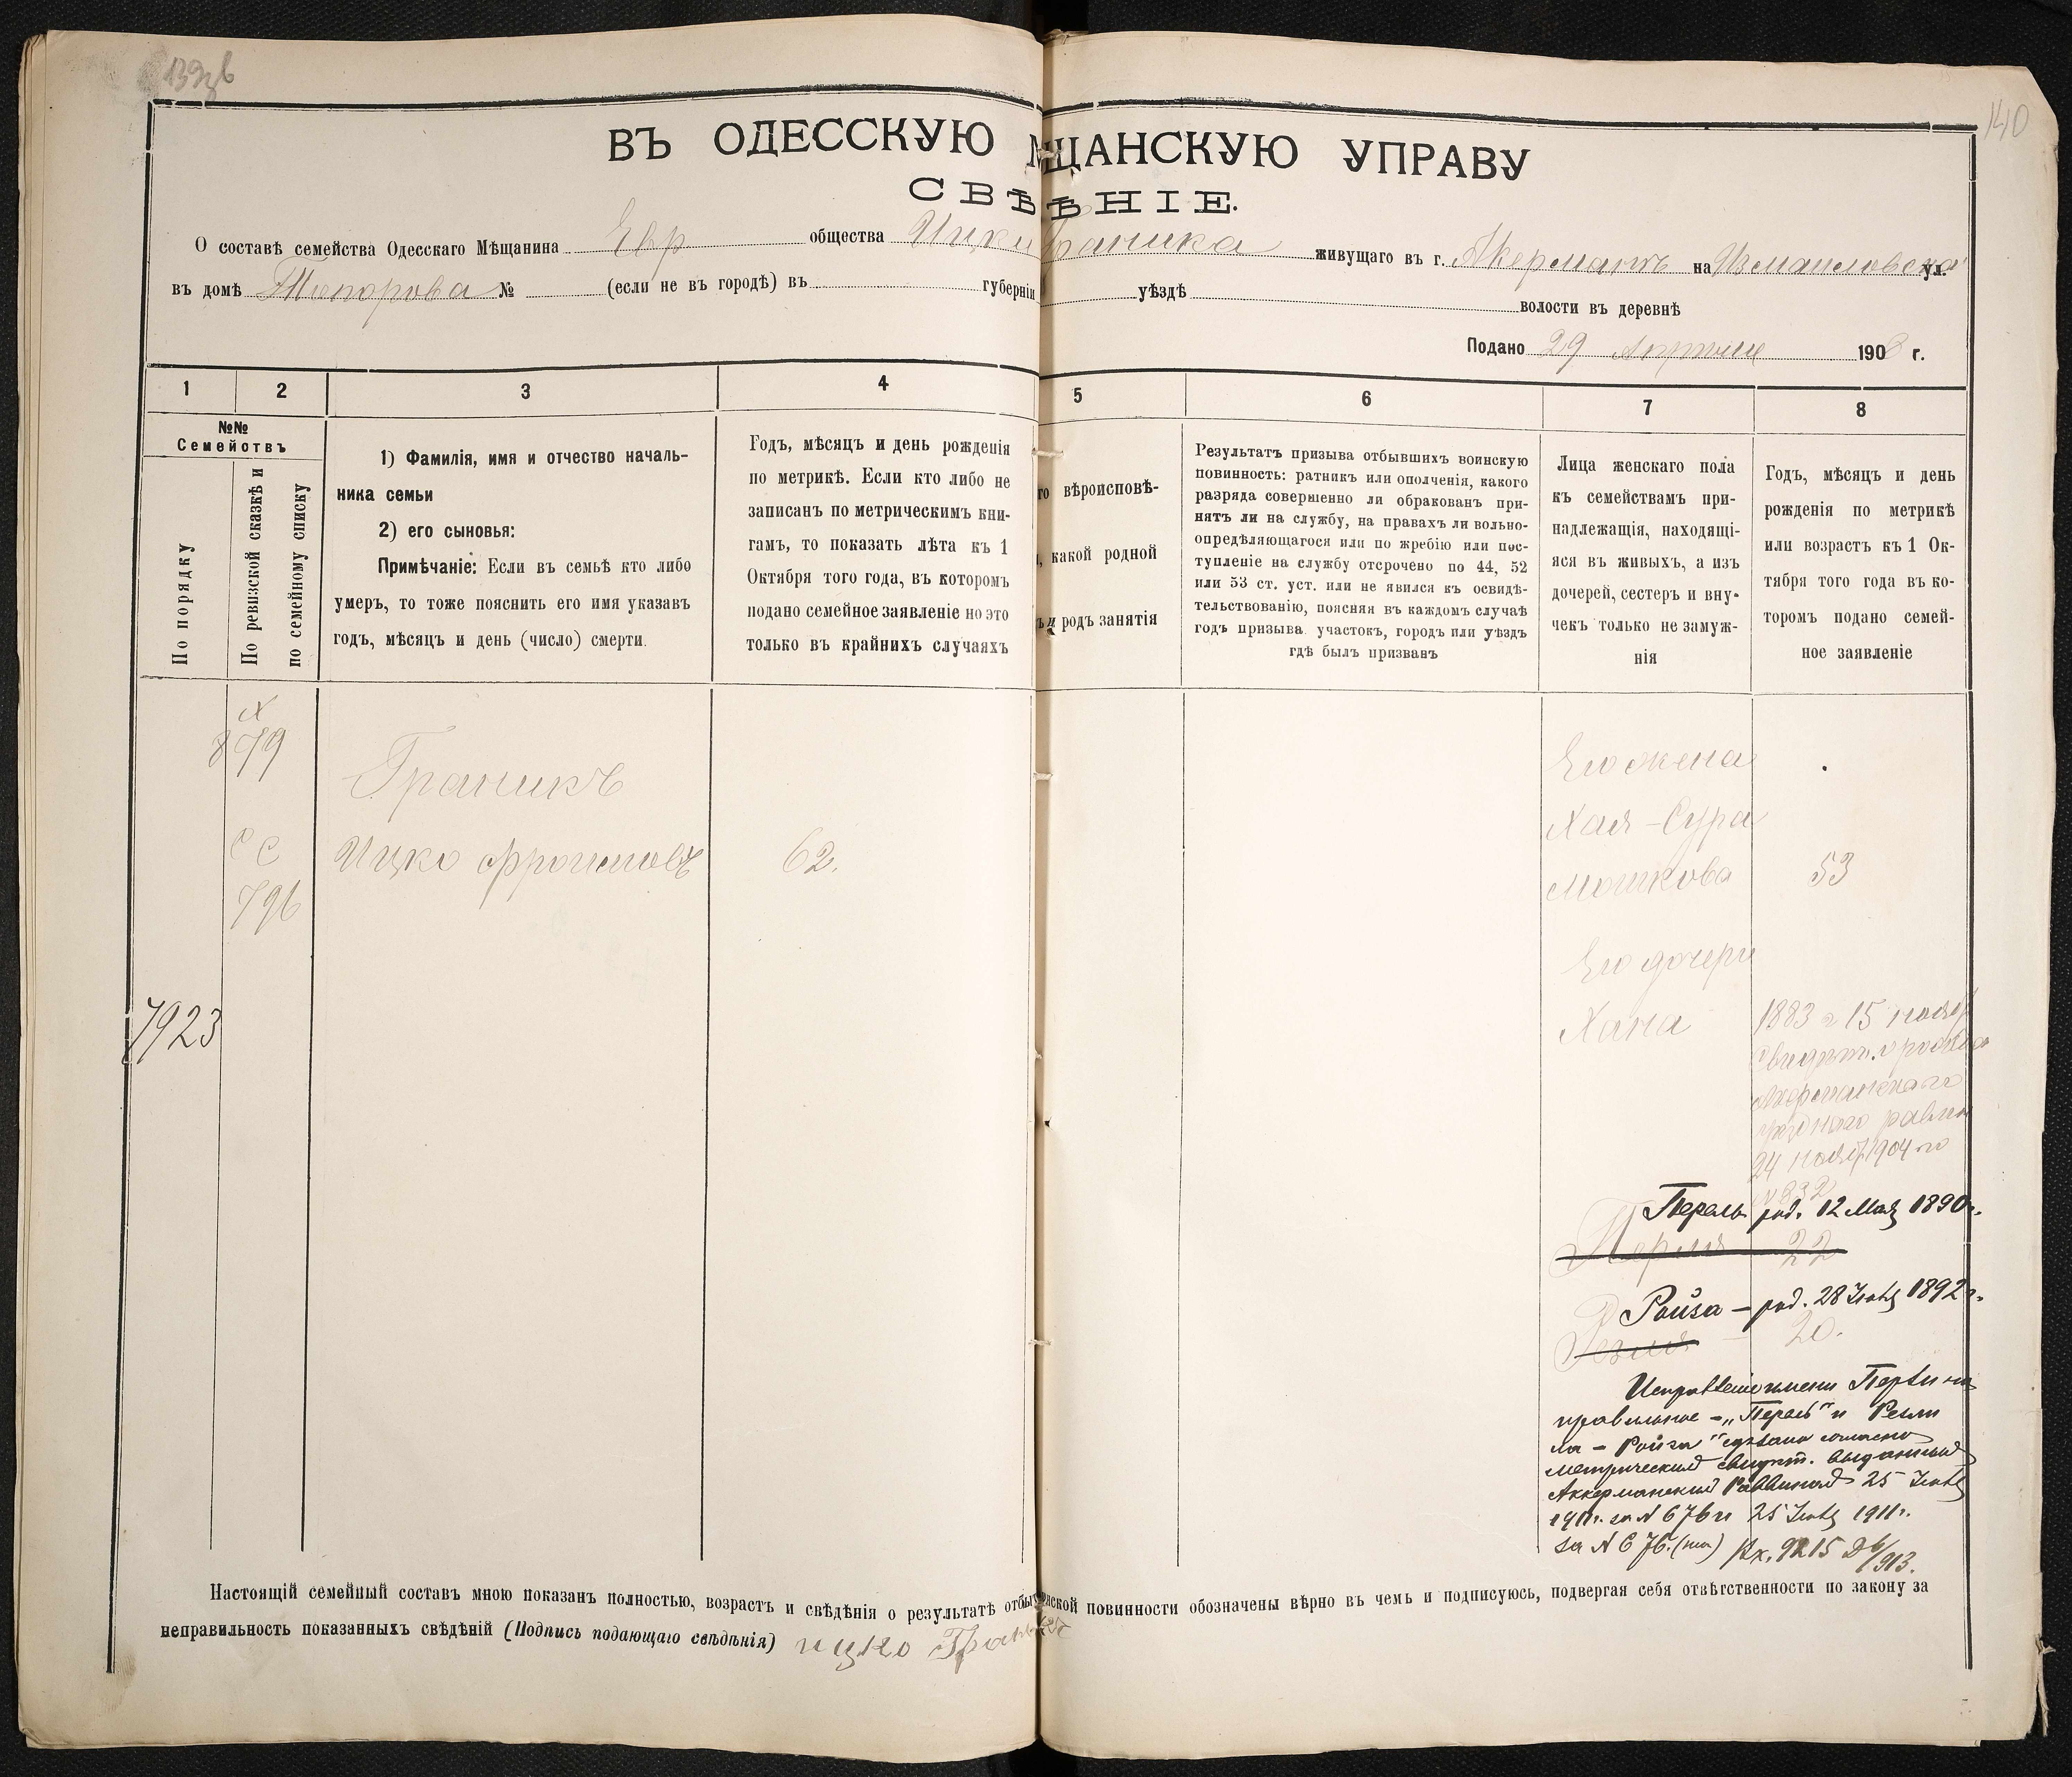 139об
140
ВЪ ОДЕССКУЮ МЩАНСКУЮ УПРАВУ
СВѢѢНІЕ.
О составѣ семейства Одесскаго Мѣщанина Евр общества Ицки Граника живущаго въ г. Акерманъ на Измаиловской ул.
въ домѣ Топорова № (если не въ городѣ) въ губерніи уѣздѣ волости въ деревнѣ
Подано 29 Апрѣля 1908 г.
1 2 3 4 5 6 7 8
№№
Семействъ
По порядку
По ревизской сказкѣ и
по семейному списку
1) Фамилія, имя и отчество началь-
ника семьи
2) его сыновья:
Примѣчаніе: Если въ семьѣ кто либо
умеръ, то тоже пояснить его имя указавъ
годъ, мѣсяцъ и день (число) смерти.
Годъ, мѣсяцъ и день рожденія
по метрикѣ. Если кто либо не
записанъ по метрическимъ кни-
гамъ, то показать лѣта къ 1
Октября того года, въ которомъ
подано семейное заявленіе но это
только въ крайнихъ случаяхъ
го вѣроисповѣ-
, какой родной
ъ и родъ занятія
Результатъ призыва отбывшихъ воинскую
повинность: ратникъ или ополченія, какого
разряда совершенно ли обракованъ при-
нятъ ли на службу, на правахъ ли вольно-
опредѣляющагося или по жребію или пос-
тупленіе на службу отсрочено по 44, 52
или 53 ст. уст. или не явился къ освидѣ-
тельствованію, поясняя въ каждомъ случаѣ
годъ призыва участокъ, городъ или уѣздъ
гдѣ былъ призванъ
Лица женскаго пола
къ семействамъ при-
надлежащія, находящі-
яся въ живыхъ, а изъ
дочерей, сестеръ и вну-
чекъ только не замуж-
нія
Годъ, мѣсяцъ и день
рожденія по метрикѣ
или возрастъ къ 1 Ок-
тября того года въ ко-
торомъ подано семей-
ное заявленіе
879
Граникъ
С С
796
Ицко Фроимовъ
62.
7923
Его жена
Хая-Сура
Мошкова 53
Его дочери
Хана 1883 г 15 ноябр
Свидѣт. о рожден
Акерманскаго
уѣзднаго равина
24 ноябр 1904 го
№ 832
Перель род. 12 Мая 1890 г.
Перля 22
Ройза – род. 28 Іюля 1892 г.
Резля 20.
Исправленіе имени Перли на
правильное – „Перель" и Резли
на – Ройза" сдѣлано согласно
метрическимъ свидѣт. выданнымъ
Аккерманскимъ Раввиномъ 25 Іюля
1911 г. за № 676 и 25 Іюля 1911 г.
за № 676. Вх. 9215
Настоящій семейный составъ мною показанъ полностью, возрастъ и свѣдѣнія о результатѣ отбыт инской повинности обозначены вѣрно въ чемъ и подписуюсь, подвергая себя отвѣтственности по закону за
неправильность показанныхъ свѣдѣній (Подпись подающаго свѣдѣнія) ицко Граникъ